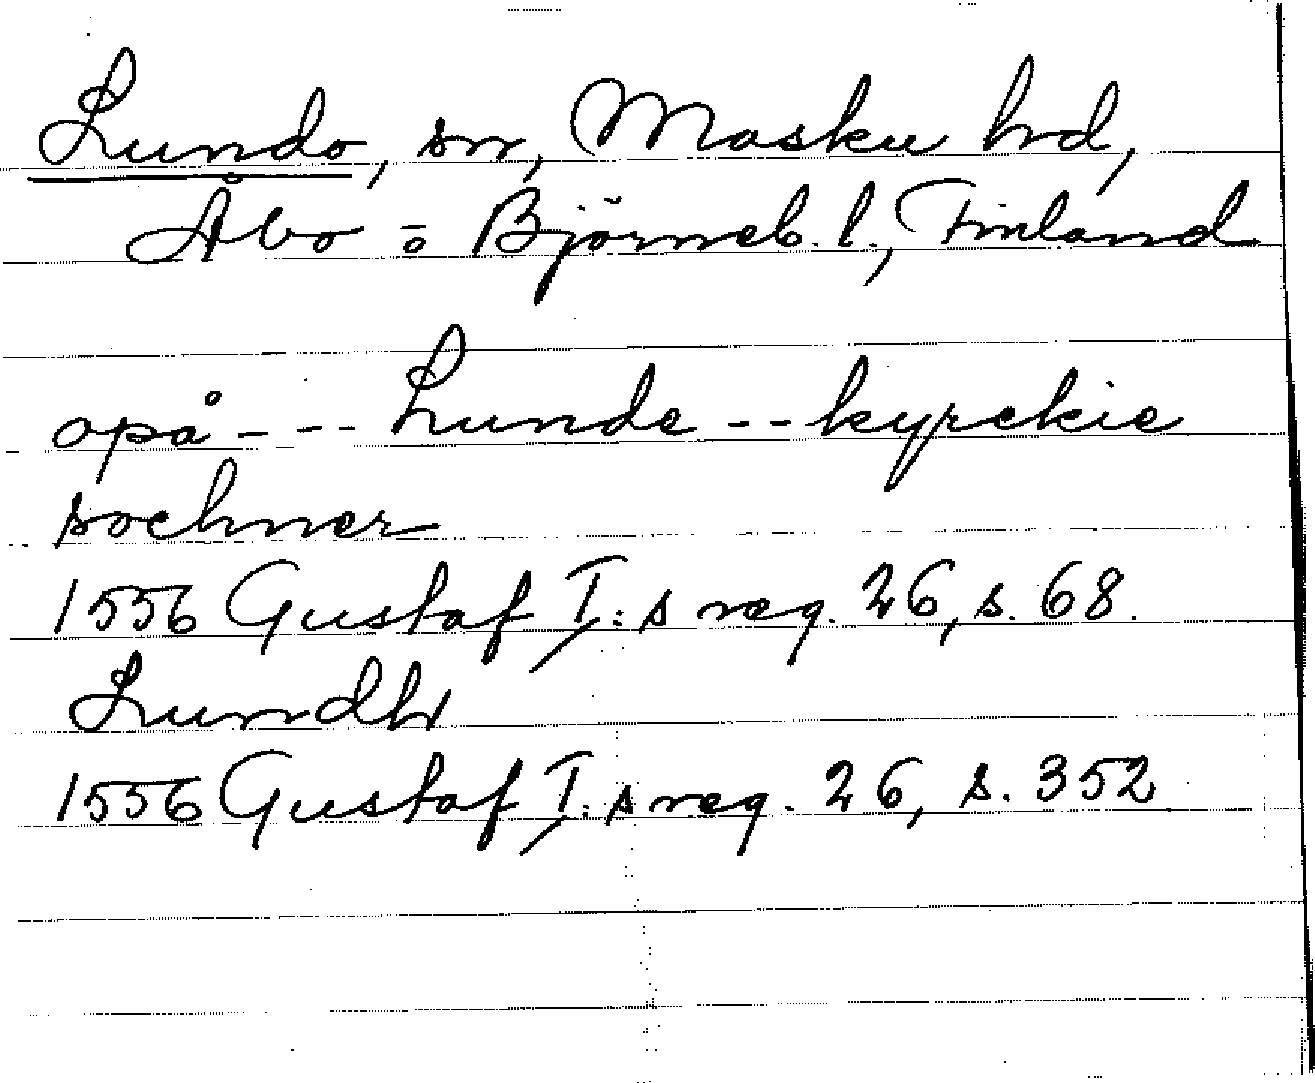 Lundo, sn, Masku hd,
Åbo o Björneb. l., Finland
opå --- Lunde -- kyrckie
sochner
1556 Gustaf I:s reg. 26, s. 68.
Lundh
1556 Gustaf I:s reg. 26, s. 352